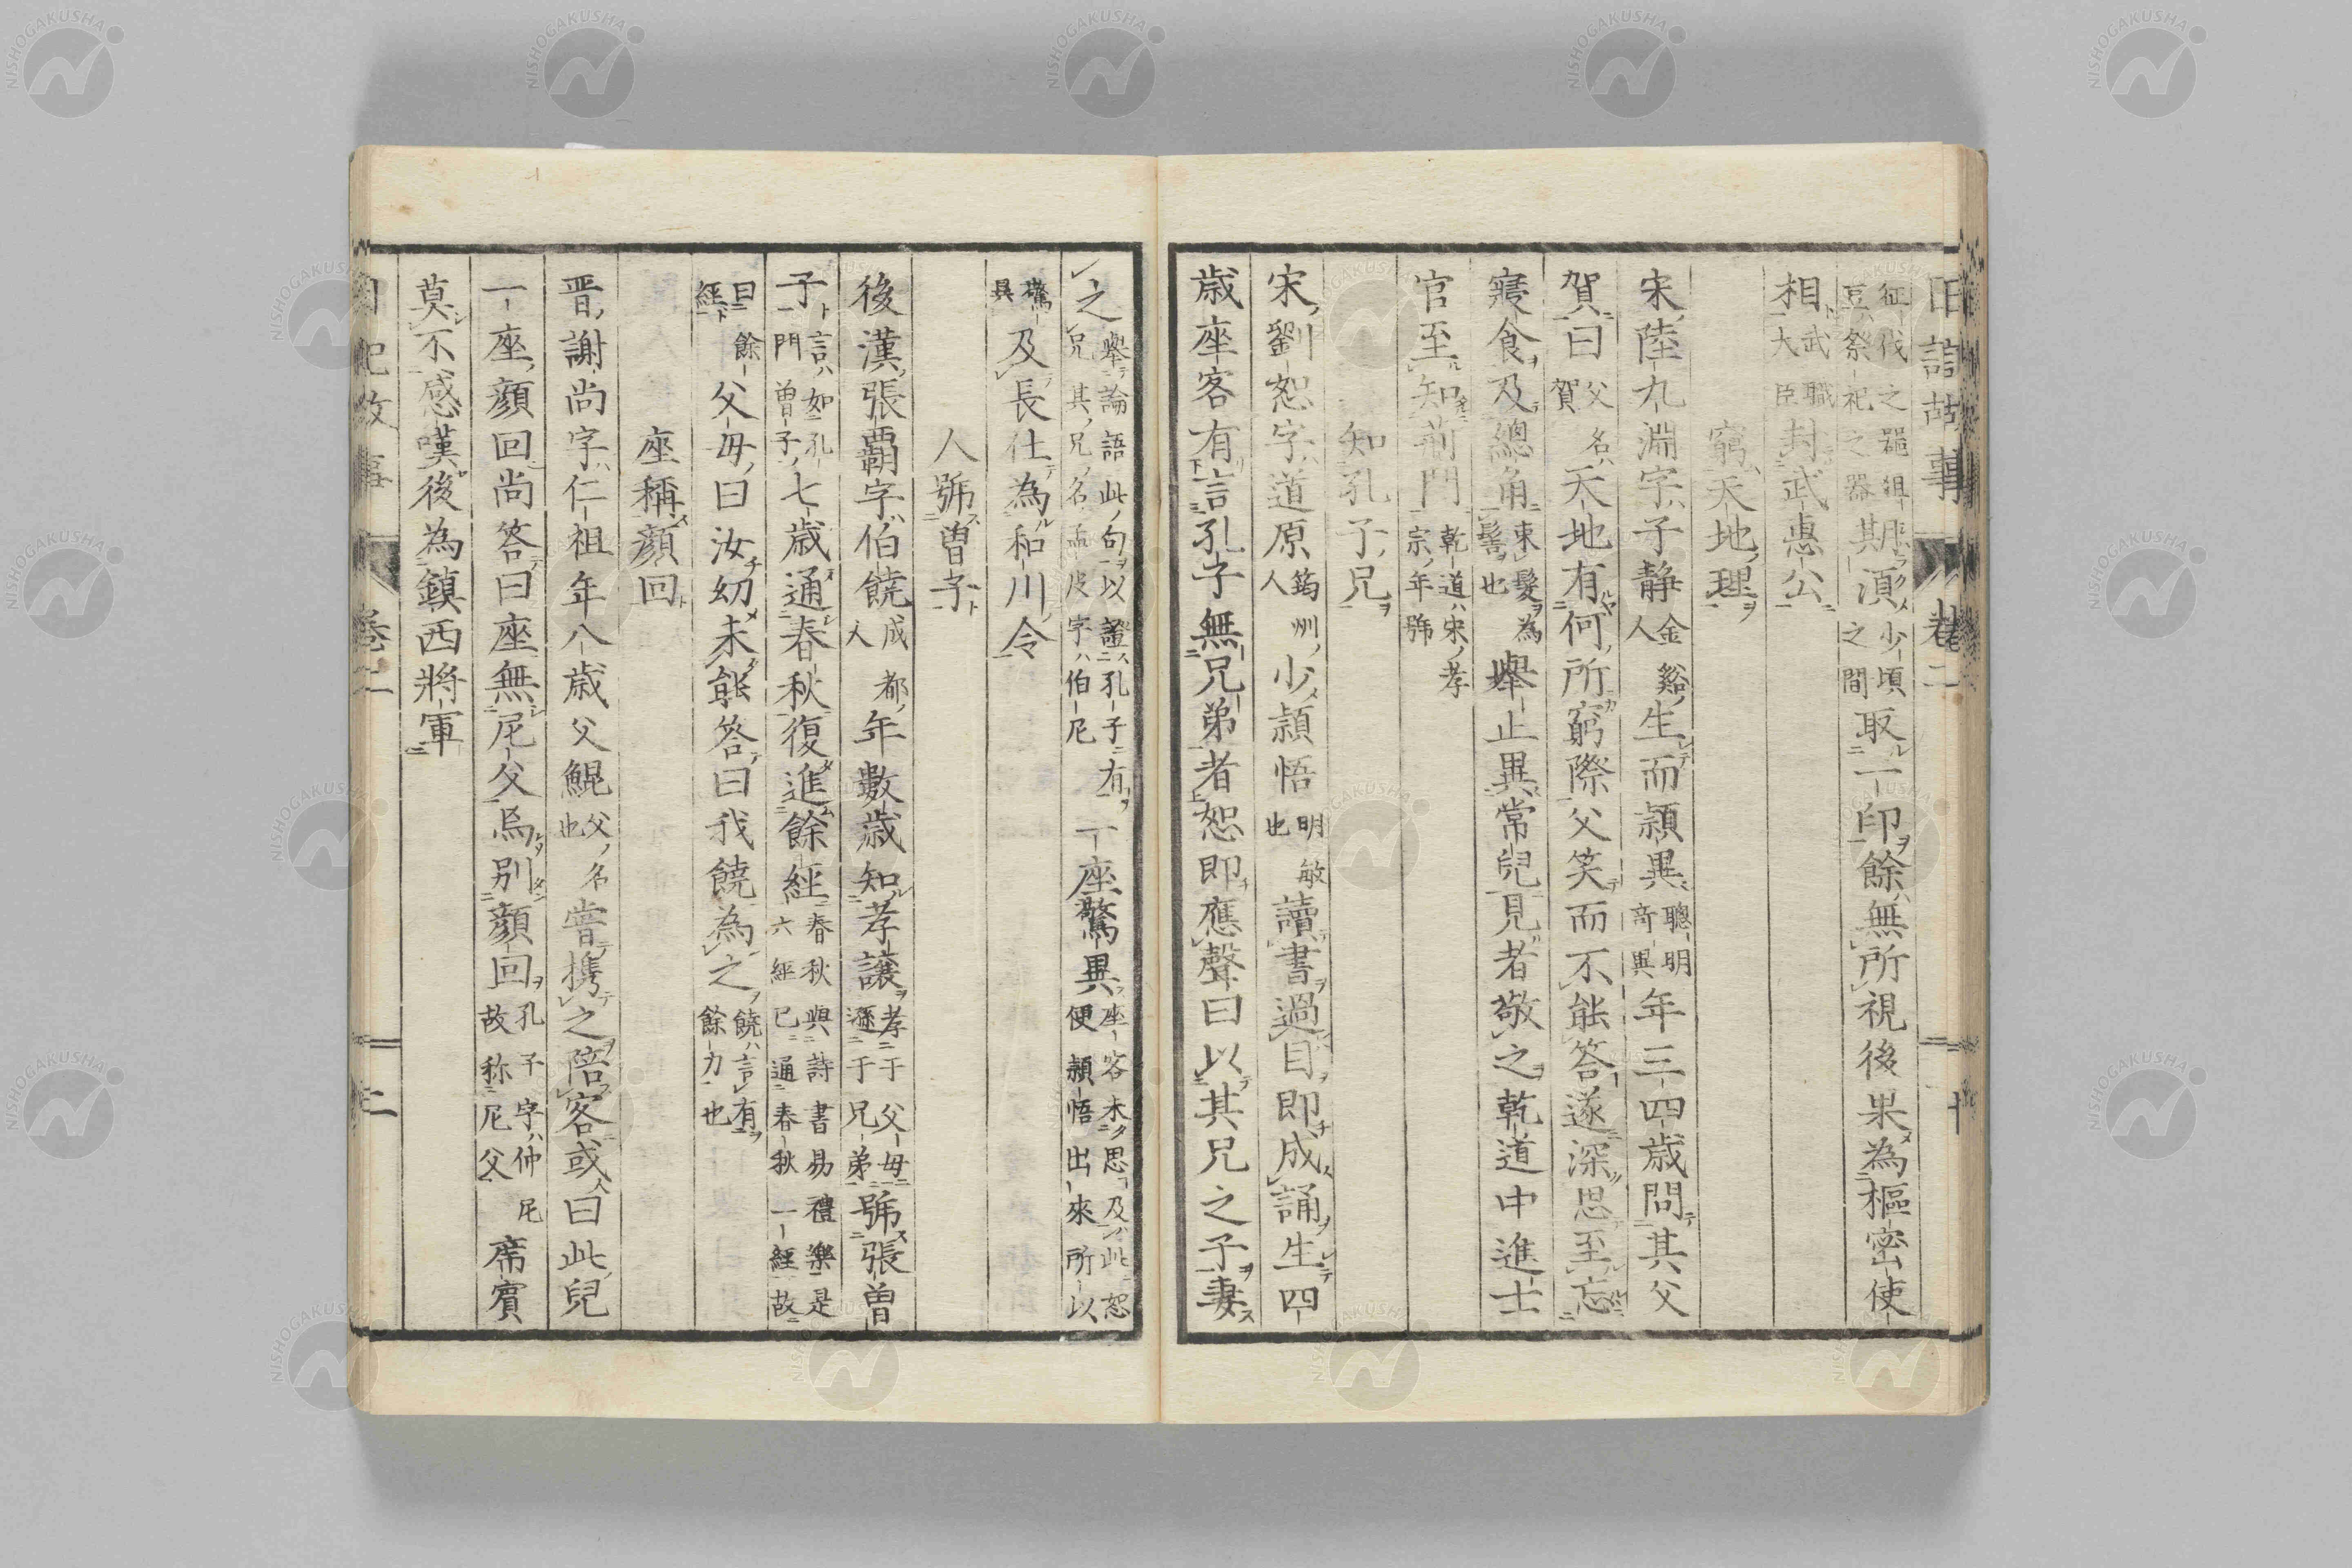 征伐之器俎豆祭祀之器其所以然頃少頃之間取一印餘無所視後果為樞密使
相武職大臣封武惠公
窮天地理
宋陸九淵字子靜金谿人生而穎異聰明奇異年三四歲問其父
賀曰父名賀天地有何所窮際父笑而不能答遂深思至忘
寢食及總角束髮為髻也舉止異常兒見者敬之乾道中進士
官至知荊門乾道宋孝宗年號
知孔子兄
宋劉恕字道原筠州人少穎悟明敏也讀書過目即成誦生四
歲座客有言孔子無兄弟者恕即應聲曰以其兄之子妻
之舉論語此句以證孔子有兄其兄名孟皮字伯尼一座驚異座客未思及此恕便穎悟出來所以
驚異及長仕為和川令
人號曾子
後漢張霸字伯饒成都人年數歲知孝讓孝于父母遜于兄弟號張曾
子言如孔門曾子七歲通春秋復進餘經春秋與詩書易禮樂是六經已通春秋一經故
曰餘經父母曰汝幼未能答曰我饒為之饒言有餘力也
座稱顏回
晋謝尚字仁祖年八歲父鯤父名也嘗携之陪客或曰此兒
一座顏回尚答曰座無尼父焉別顏回孔子字仲尼故称尼父席賓
莫不感嘆後為鎮西將軍
日記故事 卷二